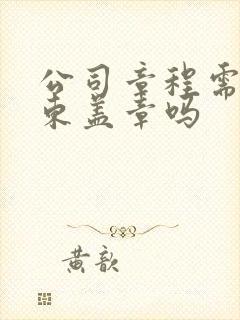 公司章程需
东盖章吗
黄歆